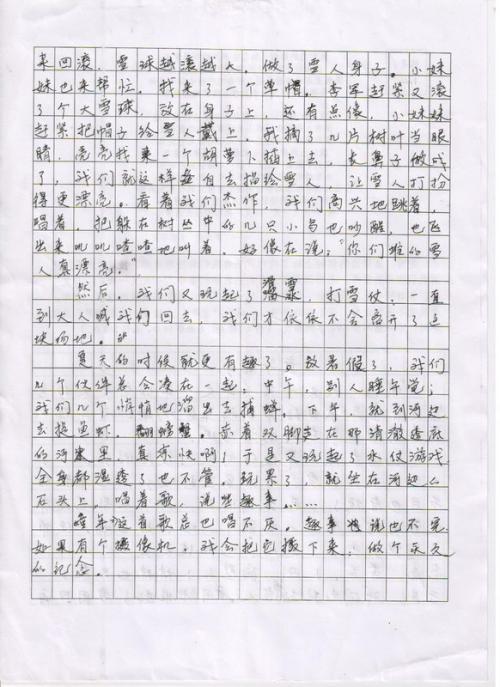 来回滚，雪球越滚越大。做了雪人身子。小妹
妹也来帮忙，找来了一个草帽。李军赶紧又滚
了个大雪球，放在身子上，还有点像，小妹妹
赶紧把帽子给雪人戴上，我摘了几片树叶当眼
睛，亮亮找来一个胡萝卜插上去，长鼻子做成
了，我们就这样各自去描绘雪人，让雪人打扮
得更漂亮。看着我们杰作，我们高兴地跳着，
唱着，把躲在树丛中的几只小鸟也吵醒，也飞
出来叽叽喳喳地叫着，好像在说："你们堆的雪
人真漂亮。"
然后，我们又玩起了滑雪，打雪仗，一直
到大人喊我们回去，我们才依依不舍离开了这
块场地。
夏天的时候就更有趣了。放暑假了，我们
几个伙伴总会凑在一起，中午，别人睡午觉；
我们几个悄悄地溜出去捕蝉。下午，就到河边
去捉鱼虾、螃蟹。赤着双脚走在那清澈透底
的河水里，真凉快啊！于是又玩起了水仗游戏
全身都湿透了也不管。玩累了，就坐在河边
石头上，唱着歌，说些趣事……
童年这首歌总也唱不厌。趣事说也不完
如果有个摄像机，我会把它摄下来，做个永久
的记念。